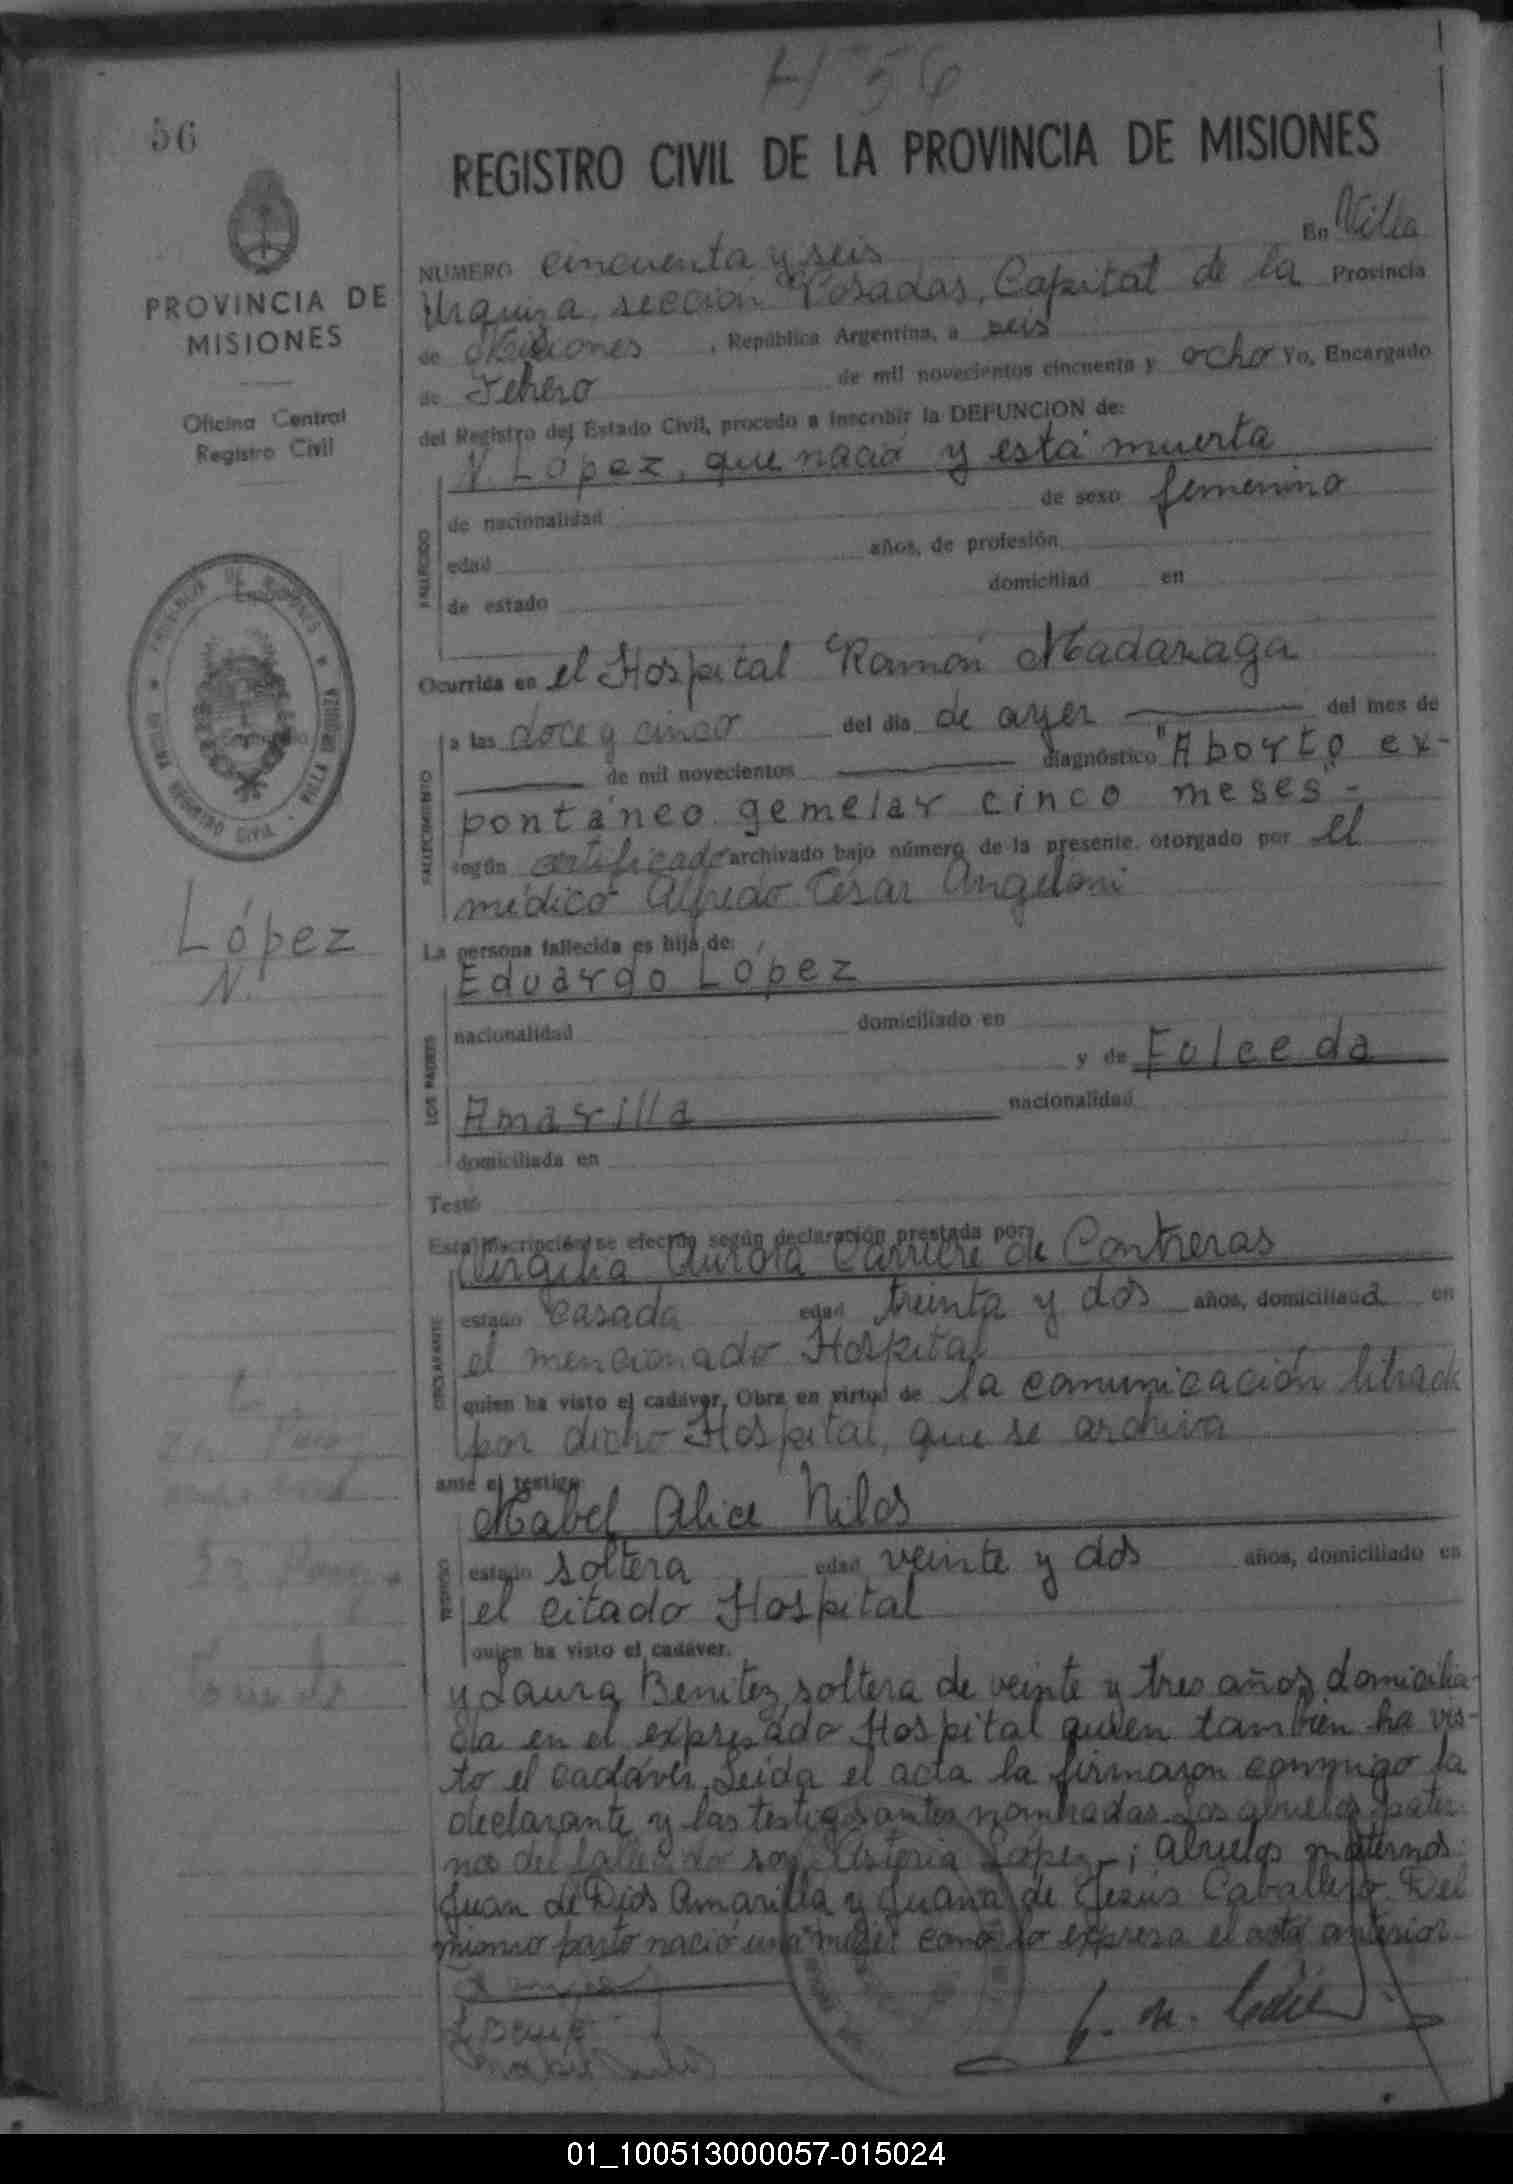 H 56
56
REGISTRO CIVIL DE LA PROVINCIA DE MISIONES
PROVINCIA DE
MISIONES
Oficina Central
Registro Civil
NUMERO cincuenta y seis En Villa
Urquiza, sección Posadas, Capital de la Provincia
de Misiones, República Argentina, a seis
de Febrero de mil novecientos cincuenta y ocho Yo, Encargado
del Registro del Estado Civil, procedo a inscribir la DEFUNCION de:
N. López, que nació y está muerta
FALLECIDO
de nacionalidad de sexo femenino
edad años, de profesión
de estado domiciliad en
Ocurrida en el Hospital Ramón Madariaga
FALLECIMIENTO
a las doce y cinco del día de ayer del mes de
de mil novecientos diagnóstico "Aborto ex-
pontáneo gemelar cinco meses"-
según certificado archivado bajo número de la presente, otorgado por el
médico Alfredo César Angeloni
López
N.
La persona fallecida es hija de:
Eduardo López
LOS PADRES
nacionalidad domiciliado en
y de Folceda
Amarilla nacionalidad
domiciliada en
Testó
Esta inscripción se efectúa según declaración prestada por:
Virgilia Aurora Carriere de Contreras
DECLARANTE
estado casada edad treinta y dos años, domiciliada en
el mencionado Hospital
quien ha visto el cadáver. Obra en virtud de la comunicación librada
por dicho Hospital, que se archiva
ante el testigo
Mabel Alice Nilos
TESTIGO
estado soltera edad veinte y dos años, domiciliado en
el citado Hospital
quien ha visto el cadáver.
y Laura Benitez, soltera de veinte y tres años, domicilia-
da en el expresado Hospital quien también ha vis-
to el cadáver. Leida el acta la firmaron conmigo la
declarante y las testigos antes nombradas. Los abuelos pater-
nos del fallecido son López-; Abuelos maternos:
Juan de Dios Amarilla y Juana de Jesús Caballero. Del
mismo parto nació una mujer como lo expresa el acta anterior.
L Benitez
01_100513000057-015024